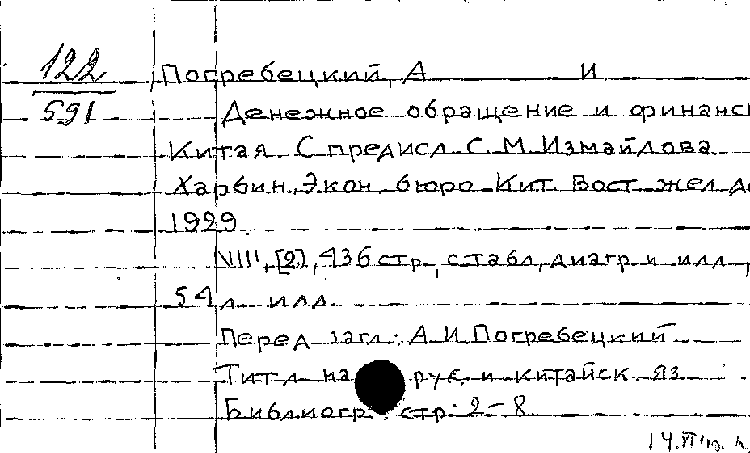 122
591
Погребецкий, А И
Денежное обращение и финансы
Китая С предисл С. М. Измайлова
Харбин, Экон. бюро Кит Вост жел д
1929
VIII, [2], 436 стр, с табл, диагр и илл,
54 л илл.
Перед загл: А. И. Погребецкий
Титл на рус. и китайск яз
Библиогр. стр. 2-8